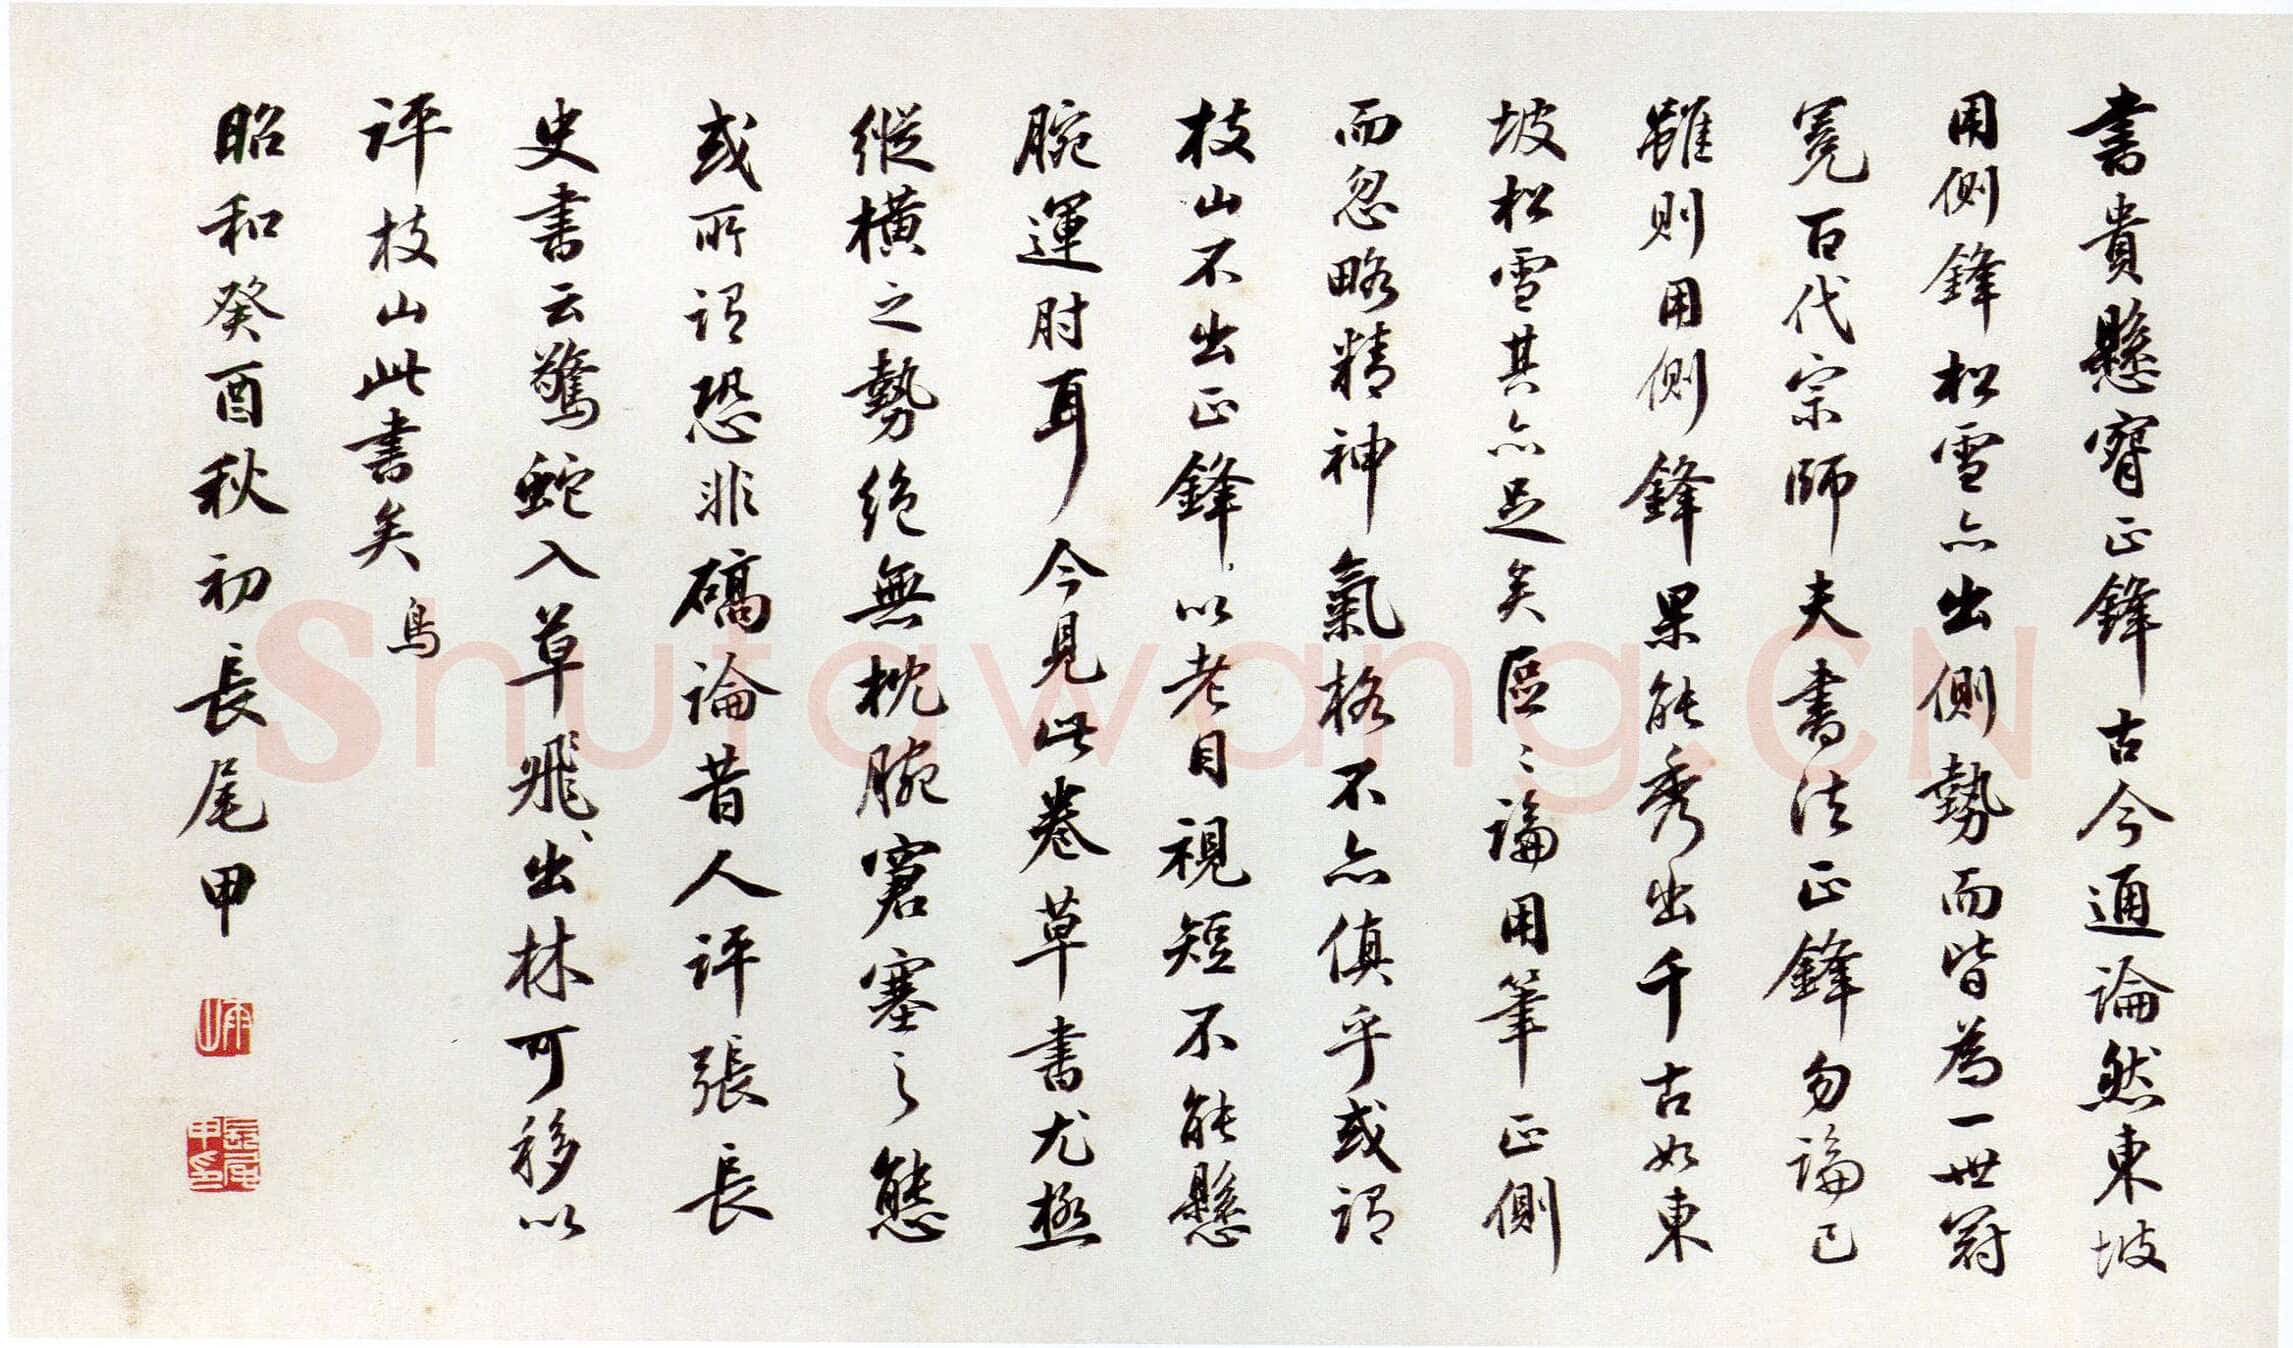 書貴懸臂正鋒古今通論然東坡
用側鋒松雪亦出側勢而皆為一世冠
冕百代宗師夫書法正鋒勿論已
雖則用側鋒果能秀出千古如東
坡松雪其亦足矣區〻論用筆正側
而忽略精神氣格不亦傎乎或謂
枝山不出正鋒以老目視短不能懸
腕運肘耳今見此卷草書尤極
縱橫之勢絕無枕腕窘塞之態
或所謂恐非確論昔人評張長
史書云驚蛇入草飛出林可移以
評枝山此書矣 鳥
昭和癸酉秋初長尾甲
長尾甲印
Shufawang.CN